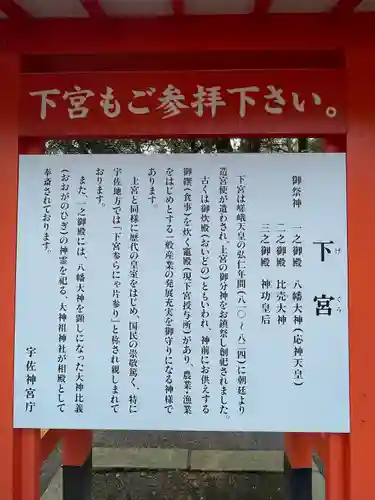 下宮もご参拝下さい。
下宮
げぐう
御祭神 一之御殿 八幡大神(応神天皇)
二之御殿 比売大神
三之御殿 神功皇后
下宮は嵯峨天皇の弘仁年間(八一〇~八二四)に朝廷より
造宮使が遣わされ、上宮の御分神をお鎮祭し創祀されました。
古くは御炊殿(おいどの)ともいわれ、神前にお供えする
御饌(食事)を炊く竈殿(現下宮授与所)があり、農業・漁業
をはじめとする一般産業の発展充実を御守りになる神様で
あります。
上宮と同様に歴代の皇室をはじめ、国民の崇敬篤く、特に
宇佐地方では「下宮参らにゃ片参り」と称され親しまれて
おります。
また、一之御殿には、八幡大神を顕しになった大神比義
(おおがのひぎ)の神霊を祀る、大神祖神社が相殿として
奉斎されております。
宇佐神宮庁